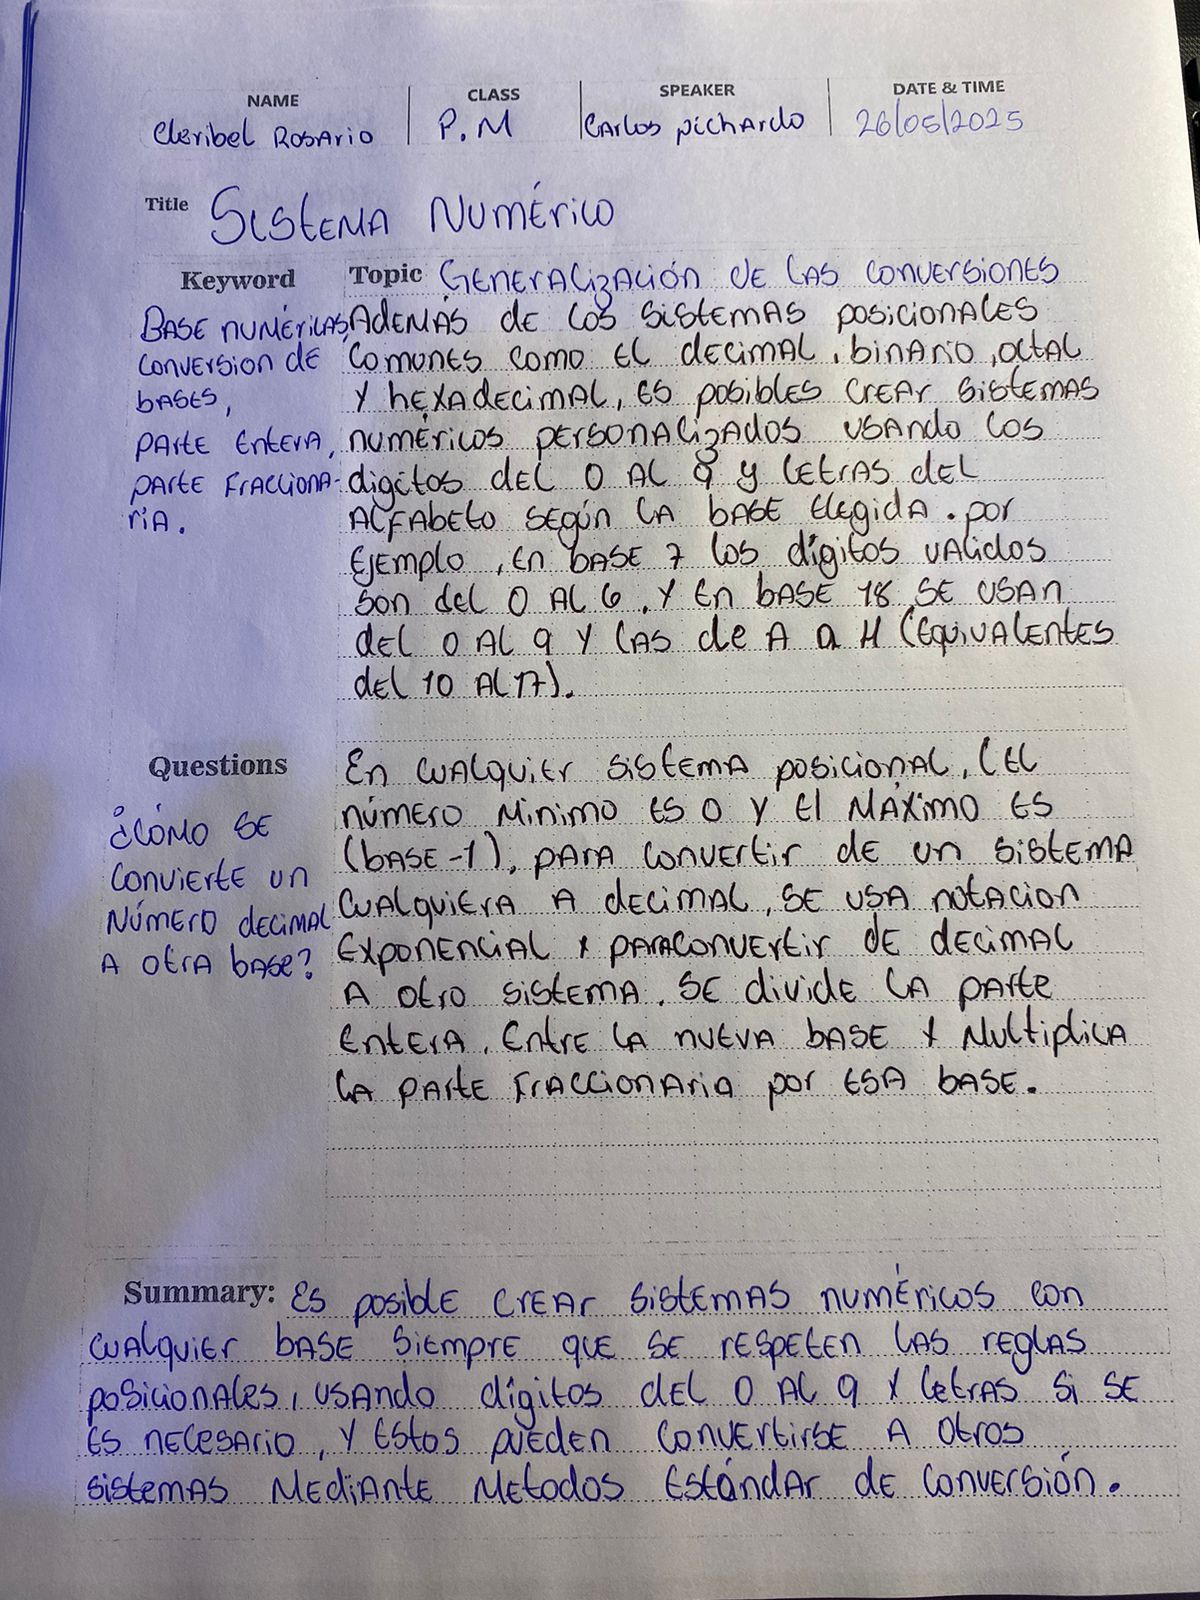 NAME CLASS SPEAKER DATE & TIME
Cleribel Rosario P.M Carlos Pichardo 26/05/2025
Title Sistema Numérico
Keyword
Base numéricas,
conversion de
bases,
parte entera,
parte fracciona-
ria.
Topic Generalización de las conversiones
Además de los sistemas posicionales
comunes como el decimal, binario, octal
y hexadecimal, es posibles crear sistemas
numéricos personalizados usando los
digitos del 0 al 9 y letras del
alfabeto según la base elegida. por
ejemplo, en base 7 los dígitos validos
son del 0 al 6, y en base 18 se usan
del 0 al 9 y las de A a H (equivalentes
del 10 al 17).
Questions
¿Cómo se
convierte un
número decimal
a otra base?
En cualquier sistema posicional, (el
número minimo es 0 y el máximo es
(base-1), para convertir de un sistema
cualquiera a decimal, se usa notacion
exponencial y para convertir de decimal
a otro sistema. se divide la parte
entera. Entre la nueva base y multiplica
la parte fraccionaria por esa base.
Summary: Es posible crear sistemas numéricos con
cualquier base siempre que se respeten las reglas
posicionales, usando dígitos del 0 al 9 y letras si se
es necesario, y estos pueden convertirse a otros
sistemas mediante metodos estándar de conversión.